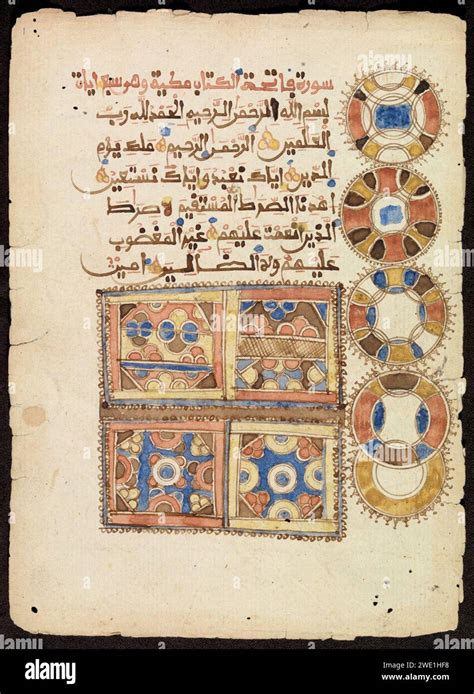 سورة فاتحة الكتاب مكية وهي سبع ءايات
بسم الله الرحمن الرحيم الحمد لله رب
العلمين الرحمن الرحيم ملك يوم
الدين اياك نعبد واياك نستعين
اهدنا الصرط المستقيم صرط
الذين انعمت عليهم غير المغضوب
عليهم ولا الضالين امين
alamy
Image ID: 2WE1HF8
www.alamy.com